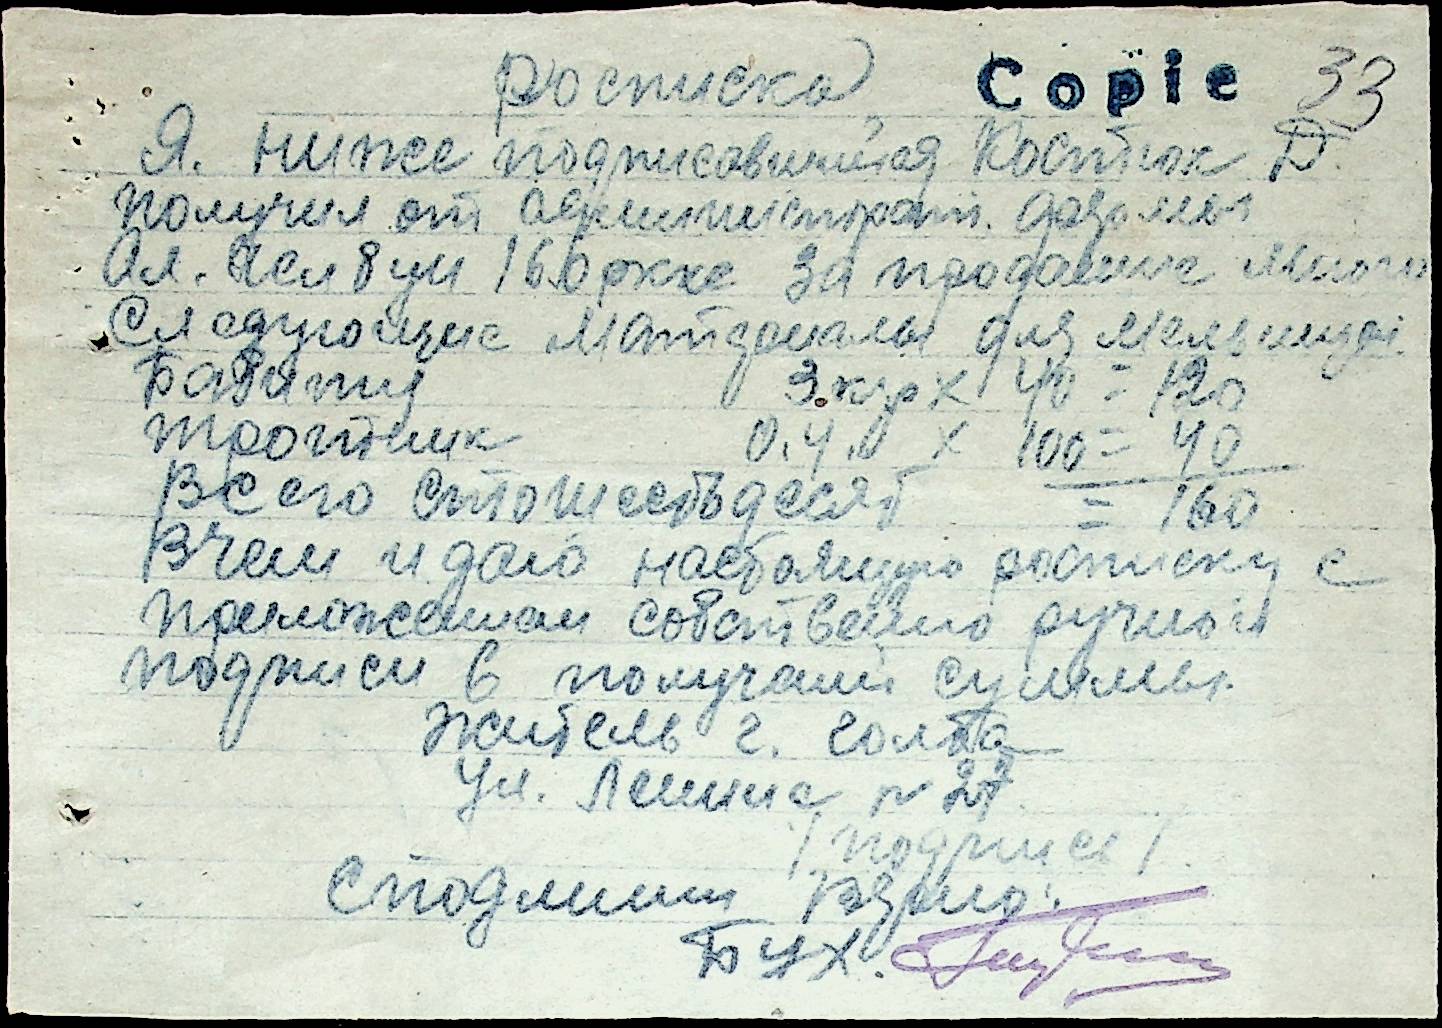 Росписка Copie 33
Я. ниже подписавшийся Костюк Д.
получил от администрат.
160 ркке за проданние мною
Следующие Матерьялы для мельницы.
3 кгр х 40 = 120
0.4. х 100 = 40
Всего стошестьдесят = 160
Вчем и даю настоящую росписку с
приложением собственно ручной
подписи в получении суммы.
житель г. Голта
Ул. Ленина № 27
/подпись/
Сподлинным верно:
Бух.